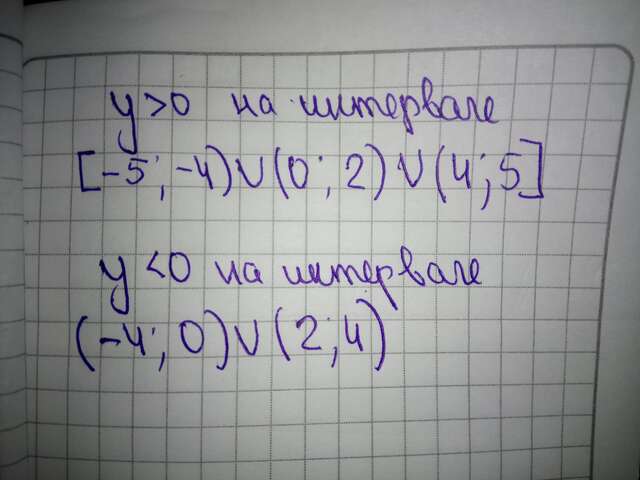 y>0 на интервале
[-5; -4)∪(0; 2)∪(4; 5]
y<0 на интервале
(-4; 0)∪(2; 4)